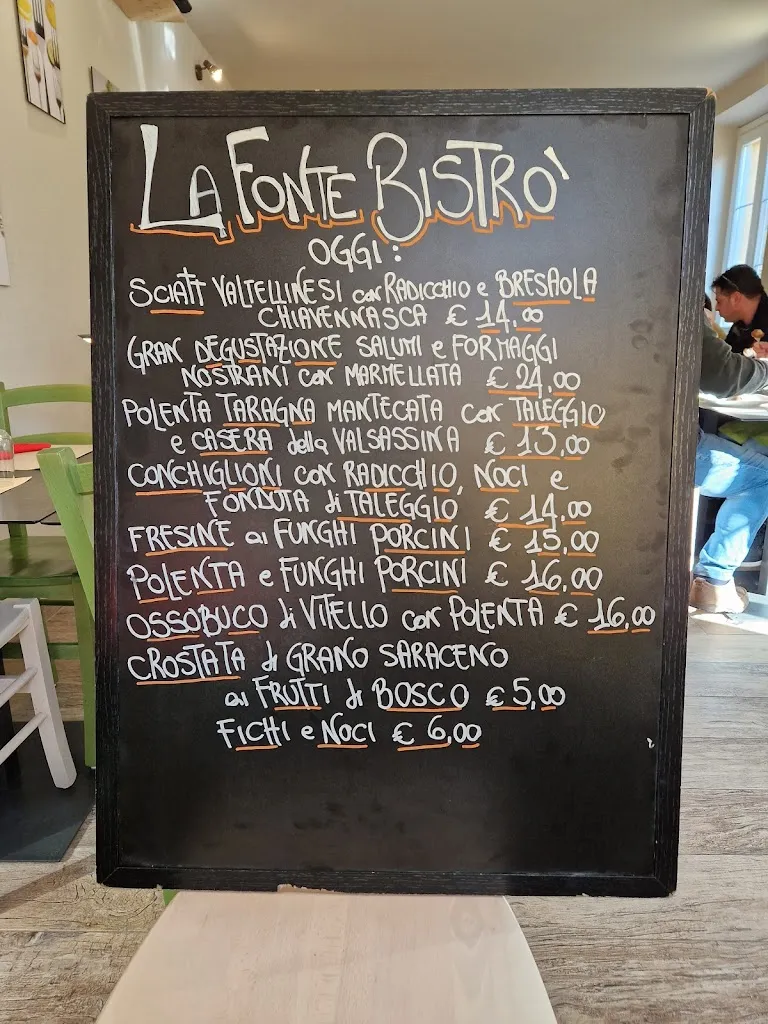 LA FONTE BISTRO'
OGGI:
SCIATT VALTELLINESI con RADICCHIO e BRESAOLA
CHIAVENNASCA € 14,00
GRAN DEGUSTAZIONE SALUMI e FORMAGGI
NOSTRANI con MARMELLATA € 24,00
POLENTA TARAGNA MANTECATA con TALEGGIO
e CASERA della VALSASSINA € 13,00
CONCHIGLIONI con RADICCHIO, NOCI e
FONDUTA di TALEGGIO € 14,00
FRESINE ai FUNGHI PORCINI € 15,00
POLENTA e FUNGHI PORCINI € 16,00
OSSOBUCO di VITELLO con POLENTA € 16,00
CROSTATA di GRANO SARACENO
ai FRUTTI di BOSCO € 5,00
FICHI e NOCI € 6,00